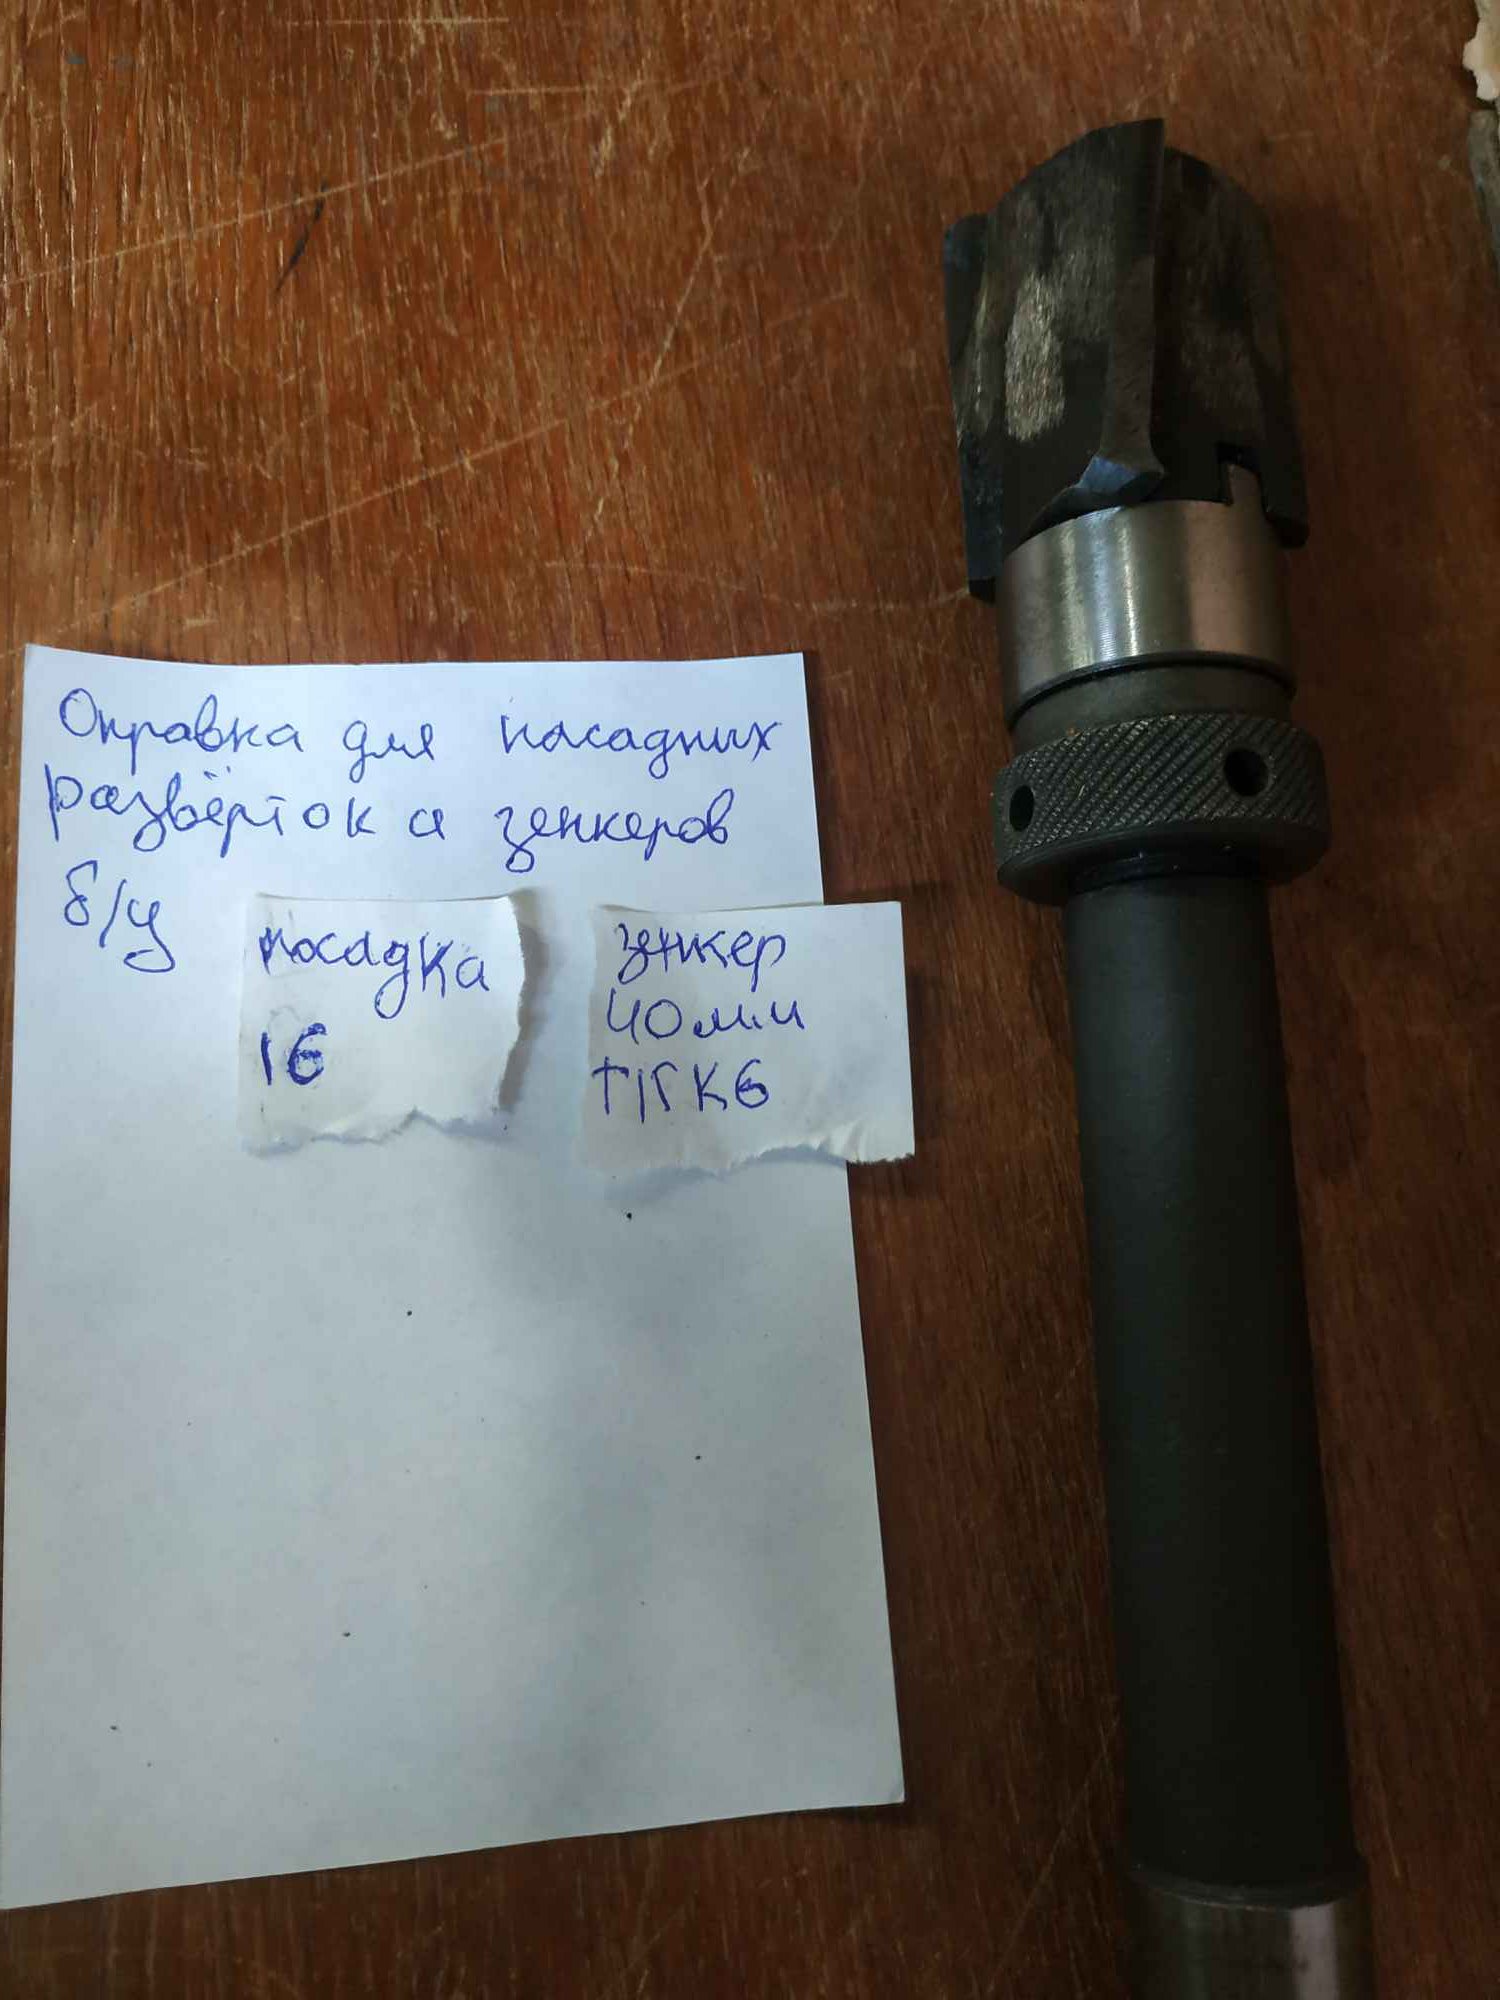 Оправка для насадных
развёрток и зенкеров
б/у
посадка
16
зенкер
40мм
Т15К6